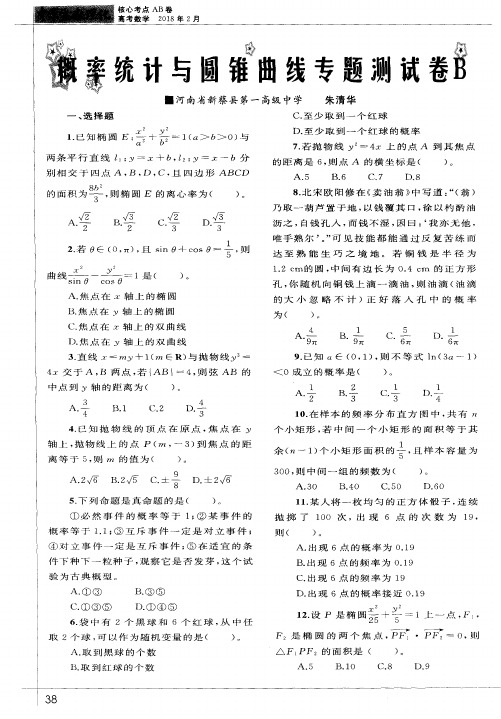 核心考点AB卷
高考数学 2018年2月
概率统计与圆锥曲线专题测试卷B
■河南省新蔡县第一高级中学 朱清华
一、选择题
1.已知椭圆E:x²/a²+y²/b²=1(a>b>0)与
两条平行直线l₁:y=x+b,l₂:y=x-b分
别相交于四点A,B,D,C,且四边形ABCD
的面积为8b²/3,则椭圆E的离心率为( )。
A.√2/2 B.√3/2 C.√2/3 D.√3/3
2.若θ∈(0,π),且sinθ+cosθ=1/5,则
曲线x²/sinθ-y²/cosθ=1是( )。
A.焦点在x轴上的椭圆
B.焦点在y轴上的椭圆
C.焦点在x轴上的双曲线
D.焦点在y轴上的双曲线
3.直线x=my+1(m∈R)与抛物线y²=
4x交于A,B两点,若|AB|=4,则弦AB的
中点到y轴的距离为( )。
A.3/4 B.1 C.2 D.4/3
4.已知抛物线的顶点在原点,焦点在y
轴上,抛物线上的点P(m,-3)到焦点的距
离等于5,则m的值为( )。
A.2√6 B.2√5 C.±9/8 D.±2√6
5.下列命题是真命题的是( )。
①必然事件的概率等于1;②某事件的
概率等于1.1;③互斥事件一定是对立事件;
④对立事件一定是互斥事件;⑤在适宜的条
件下种下一粒种子,观察它是否发芽,这个试
验为古典概型。
A.①③ B.③⑤
C.①③⑤ D.①④⑤
6.袋中有2个黑球和6个红球,从中任
取2个球,可以作为随机变量的是( )。
A.取到黑球的个数
B.取到红球的个数
C.至少取到一个红球
D.至少取到一个红球的概率
7.若抛物线y²=4x上的点A到其焦点
的距离是6,则点A的横坐标是( )。
A.5 B.6 C.7 D.8
8.北宋欧阳修在《卖油翁》中写道:“(翁)
乃取一葫芦置于地,以钱覆其口,徐以杓酌油
沥之,自钱孔入,而钱不湿,因曰:‘我亦无他,
唯手熟尔’。”可见技能都能通过反复苦练而
达至熟能生巧之境地。若铜钱是半径为
1.2 cm的圆,中间有边长为0.4 cm的正方形
孔,你随机向铜钱上滴一滴油,则油滴(油滴
的大小忽略不计)正好落入孔中的概率
为( )。
A.4/9π B.1/9π C.5/6π D.1/6π
9.已知a∈(0,1),则不等式ln(3a-1)
<0成立的概率是( )。
A.1/2 B.2/3 C.1/3 D.1/4
10.在样本的频率分布直方图中,共有n
个小矩形,若中间一个小矩形的面积等于其
余(n-1)个小矩形面积的1/5,且样本容量为
300,则中间一组的频数为( )。
A.30 B.40 C.50 D.60
11.某人将一枚均匀的正方体骰子,连续
抛掷了100次,出现6点的次数为19,
则( )。
A.出现6点的概率为0.19
B.出现6点的频率为0.19
C.出现6点的频率为19
D.出现6点的概率接近0.19
12.设P是椭圆x²/25+y²/5=1上一点,F₁,
F₂是椭圆的两个焦点,PF₁·PF₂=0,则
△F₁PF₂的面积是( )。
A.5 B.10 C.8 D.9
38